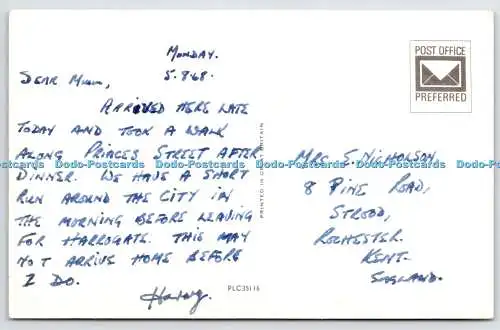 MONDAY.
5.8.68.
DEAR MUM,
ARRIVED HERE LATE
TODAY AND TOOK A WALK
ALONG PRINCES STREET AFTER
DINNER. WE HAVE A SHORT
RUN AROUND THE CITY IN
THE MORNING BEFORE LEAVING
FOR HARROGATE. THIS MAY
NOT ARRIVE HOME BEFORE
I DO.
PRINTED IN GREAT BRITAIN
PLC35116
POST OFFICE
PREFERRED
MRS. S. NICHOLSON
8 PINE ROAD,
STROOD,
ROCHESTER.
KENT.
ENGLAND.
Dodo-Postcards Dodo-Postcards Dodo-Postcards Dodo-Postcards